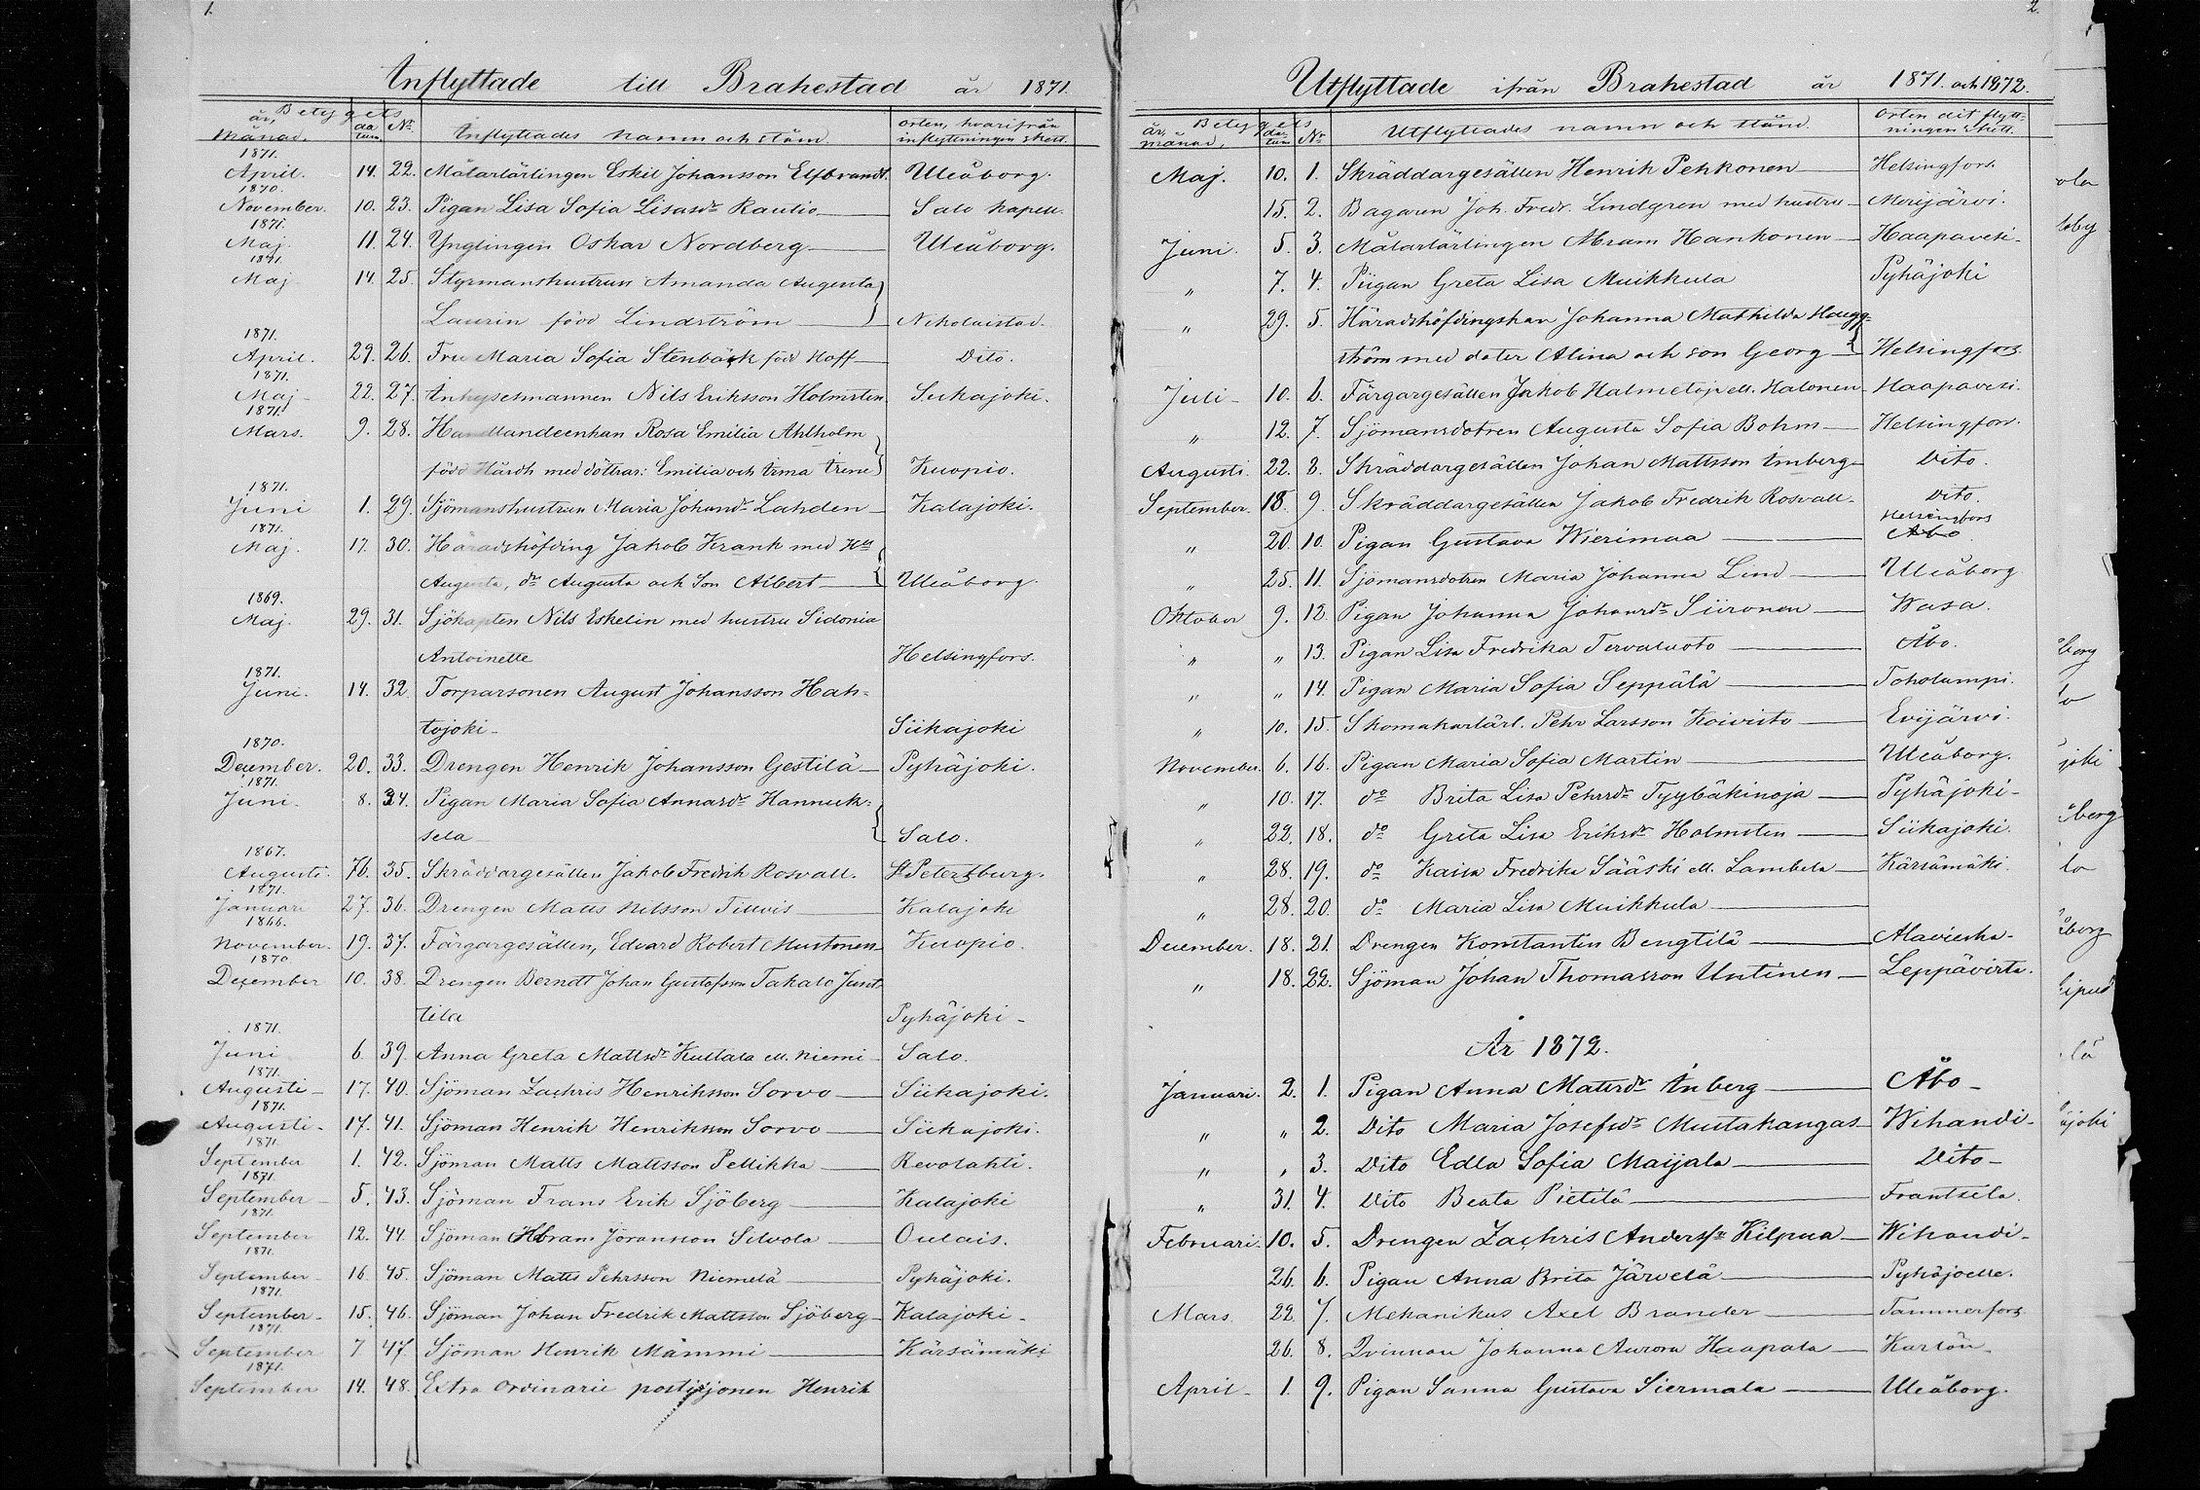 1.
Inflyttade till Brahestad år 1871.
Betygets
år, månad. da tum. No. Inflyttades namn och stånd. Orten, hvarifrån inflyttningen skett.
1871.
April. 14. 22. Målarlärlingen Eskil Johansson Elfbrandt. Uleåborg.
1870.
November. 10. 23. Pigan Lisa Sofia Lisasdr Rautio Salo kapell.
1871.
Maj. 11. 24. Ynglingen Oskar Nordberg Uleåborg.
1871.
Maj 14. 25. Styrmanshustrun Amanda Augusta
Laurin född Lindström Nikolaistad.
1871.
April. 29. 26. Fru Maria Sofia Stenbäck född Hoff Dito.
1871.
Maj 22. 27. Inhysesmannen Nils Eriksson Holmsten Siikajoki.
1871.
Mars. 9. 28. Handlandeenkan Rosa Emilia Ahlholm
född Hårdh med döttrar: Emilia och Irma Irene Kuopio.
1871.
Juni 1. 29. Sjömanshustrun Maria Johansdr Lahden Kalajoki.
1871.
Maj. 17. 30. Häradshöfding Jakob Krank med Hu
Augusta, dr Augusta och Son Albert Uleåborg.
1869.
Maj. 29. 31. Sjökapten Nils Eskelin med hustru Sidonia
Antoinette Helsingfors.
1871.
Juni. 14. 32. Torparsonen August Johansson Hah-
tojoki Siikajoki
1870.
December. 20. 33. Drengen Henrik Johansson Gestilä Pyhäjoki.
1871.
Juni. 8. 34. Pigan Maria Sofia Annasdr Hannuk-
sela Salo.
1867.
Augusti. 76. 35. Skräddargesällen Jakob Fredrik Rosvall. St Petersburg.
1871.
Januari 27. 36. Drengen Matts Nilsson Tillvis Kalajoki
1866.
November. 19. 37. Färgargesällen, Edvard Robert Mustonen Kuopio.
1870.
December 10. 38. Drengen Berndt Johan Gustafsson Takalo Junt-
tila Pyhäjoki
1871.
Juni 6. 39. Anna Greta Mattsdr Kultala ell. Niemi Salo.
1871.
Augusti 17. 40. Sjöman Zachris Henriksson Sorvo Siikajoki.
1871.
Augusti 17. 41. Sjöman Henrik Henriksson Sorvo Siikajoki.
1871.
September 1. 42. Sjöman Matts Mattsson Pellikka Revolahti.
1871.
September 5. 43. Sjöman Frans Erik Sjöberg Kalajoki
1871.
September 12. 44. Sjöman Abram Jöransson Silvola Oulais.
1871.
September 16. 45. Sjöman Matts Pehrsson Niemelä Pyhäjoki.
1871.
September 15. 46. Sjöman Johan Fredrik Mattsson Sjöberg Kalajoki
1871.
September 7 47. Sjöman Henrik Mämmi Kärsämäki
1871.
September 14. 48. Extra Ordinarie postiljonen Henrik
2.
Utflyttade ifrån Brahestad år 1871. och 1872.
Betygets
år, månad, da- tum No Utflyttades namn och stånd. Orten dit flytt- ningen skett.
Maj. 10. 1. Skräddargesällen Henrik Pehkonen Helsingfors.
15. 2. Bagaren Joh. Fredr. Lindgren med hustru Merijärvi.
Juni. 5. 3. Målarlärlingen Abram Hankonen Haapavesi.
" 7. 4. Piigan Greta Lisa Muikkula Pyhäjoki
" 29. 5. Häradshöfdingskan Johanna Mathilda Hougg-
ström med doter Alina och son Georg Helsingfors
Juli 10. 6. Färgargesällen Jakob Halmetoja ell. Halonen Haapavesi.
" 12. 7. Sjömansdotren Augusta Sofia Bohm Helsingfors.
Augusti. 22. 8. Skräddargesällen Johan Mattsson Imberg Dito.
September. 18. 9. Skräddargesällen Jakob Fredrik Rosvall Dito.
" 20. 10. Pigan Gustava Wierimaa Helsingfors Åbo.
" 25. 11. Sjömansdotren Maria Johanna Lind Uleåborg
Oktober 9. 12. Pigan Johanna Johansdr Siironen Wasa.
" " 13. Pigan Lisa Fredrika Tervaluoto Åbo.
" " 14. Pigan Maria Sofia Seppälä Toholampi.
" 10. 15. Skomakarlärl. Pehr Larsson Koivisto Evijärvi.
November. 6. 16. Pigan Maria Sofia Martin Uleåborg.
" 10. 17. do Brita Lisa Pehrsdr Tyybäkinoja Pyhäjoki
" 22. 18. do Greta Lisa Eriksdr Holmsten Siikajoki.
" 28. 19. do Kaisa Fredrika Sääski ell. Lambela Kärsämäki.
" 28. 20. do Maria Lisa Muikkula
December. 18. 21. Drengen Konstantin Bengtilä Alavieska
" 18. 22. Sjöman Johan Thomasson Untinen Leppävirta.
År 1872.
Januari. 2. 1. Pigan Anna Matsdr Inberg Åbo
" " 2. Dito Maria Josefsdr Mustakangas Wihandi
" " 3. Dito Edla Sofia Maijala Dito
" 31. 4. Dito Beata Pietilä Frantsila.
Februari. 10. 5. Drengen Zachris Anderssn Kilpua Wihandi
26. 6. Pigan Anna Brita Järvelä Pyhäjoelle.
Mars. 22. 7. Mekanikus Axel Brander Tammerfors.
26. 8. Qvinnan Johanna Aurora Haapala Karlön
April 1. 9. Pigan Sanna Gustava Siermala Uleåborg.